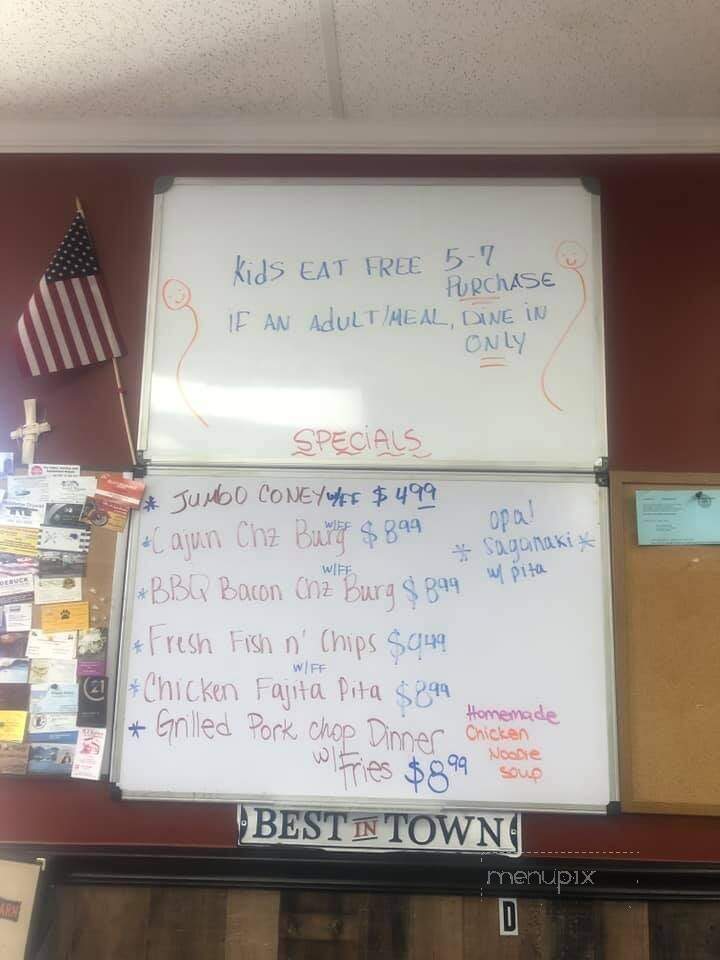 Kids EAT FREE 5-7
PURCHASE
IF AN AdULT/MEAL, DINE iN
ONLY
SPECiALS
* JUMBO CONEY W/FF $4.99
W/FF
* Cajun Chz Burg $8.99
W/FF
* BBQ Bacon Chz Burg $8.99
* Fresh Fish n' Chips $9.49
W/FF
* Chicken Fajita Pita $8.99
* Grilled Pork chop Dinner
w/ Fries $8.99
opa!
* Saganaki *
w/ pita
Homemade
Chicken
Noodle
Soup
BEST IN TOWN
menupix
D